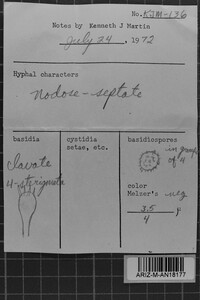 No. KJM-136
Notes by Kenneth J Martin
July 24, 1972
Hyphal characters
nodose-septate
basidia
clavate
4-sterigmata
cystidia
setae, etc.
basidiospores
in groups
of 4
color
Melzer's neg
3.5
4 μ
ARIZ-M-AN18177